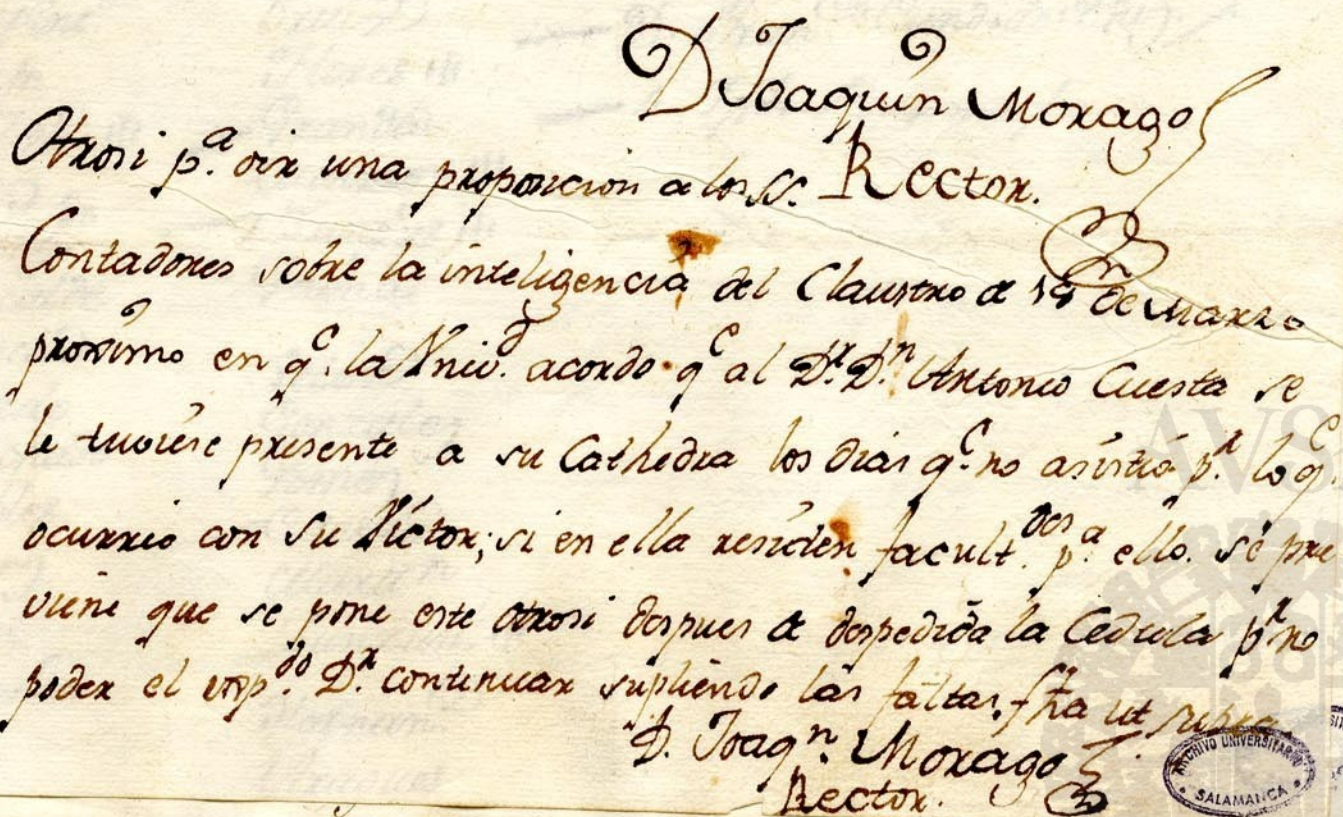 D Joaquin Morago
Rector.
Otrosi p.a oir una proposicion a los SS.
Contadores sobre la inteligencia del Claustro de 14 de Marzo
proxsimo en q.e la Vniv.d acordo q.e al D.r D.n Antonio Cuesta se
le tuviese presente a su Cathedra los dias q.e no asistió p.r lo q.e
ocurrio con su Víctor; si en ella residen facult.des p.a ello. se pre
viene que se pone este otrosi despues de despedida la Cedula p.r no
poder el exp.do D.r continuar supliendo las faltas, fha ut supra
D. Joaq.n Morago
Rector.
AVSA
ARCHIVO UNIVERSITARIO
SALAMANCA